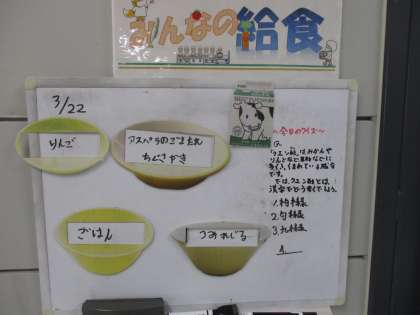 みんなの給食
3/22
りんご
アスパラのごまたれ
ちぐさやき
ごはん
つみれじる
〜今日のクイズ〜
Q.
「クエン酸」はみかんや
りんごなど果物などに
多くふくまれている成分
です。
では、クエン酸とは、
漢字でどう書くでしょう。
1.枸橼酸
2.句橼酸
3.九橼酸